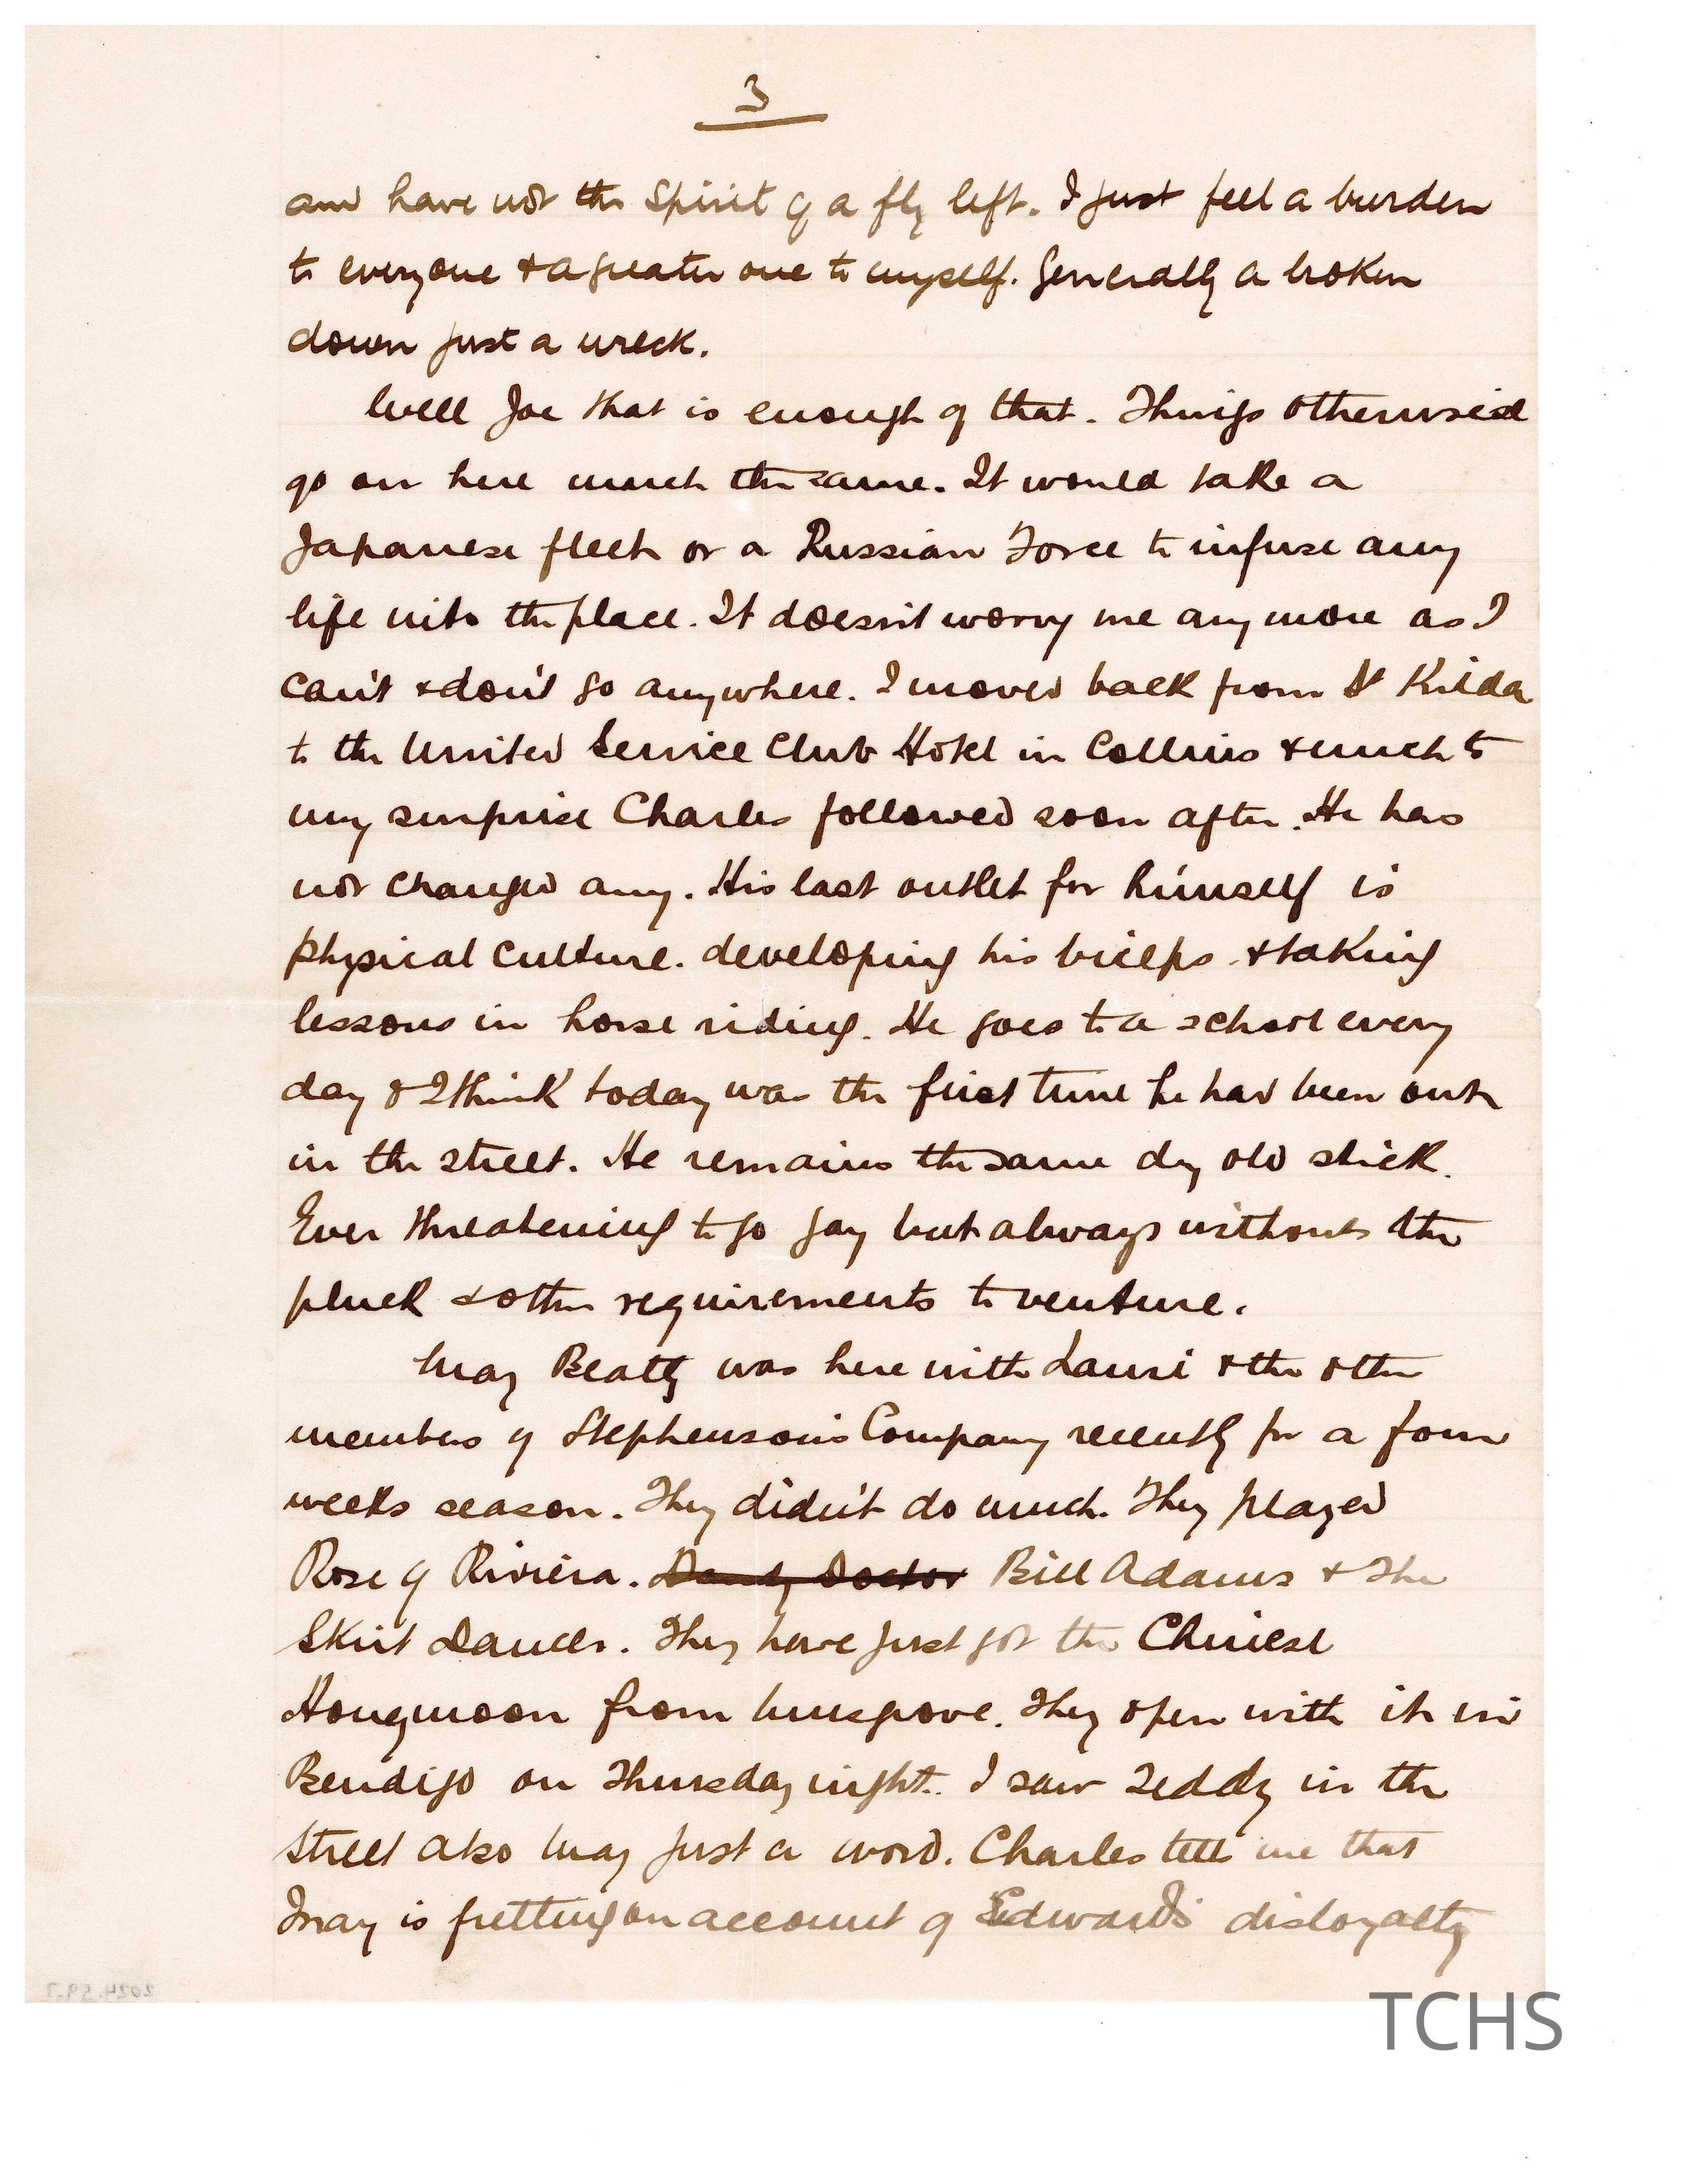 3
and have not the spirit of a fly left. I just feel a burden
to everyone & a greater one to myself. Generally a broken
down just a wreck.
Well Joe that is enough of that. Things otherwise
go on here much the same. It would take a
Japanese fleet or a Russian Force to infuse any
life into the place. It doesn't worry me any more as I
can't & don't go anywhere. I moved back from St Kilda
to the United Service Club Hotel in Collins & much to
my surprise Charles followed soon after. He has
not changed any. His last outlet for himself is
physical culture. developing his biceps & taking
lessons in horse riding. He goes to a school every
day & I think today was the first time he had been out
in the street. He remains the same dry old stick.
Ever threatening to go gay but always without the
pluck & other requirements to venture.
May Beatty was here with Lauri & the other
members of Stephenson's Company recently for a four
weeks season. They didn't do much. They played
Rose of Riviera. Dandy Doctor Bill Adams & The
Skirt Dancer. They have just got the Chinese
Honeymoon from Musgrove. They open with it in
Bendigo on Thursday night. I saw Teddy in the
street also May just a word. Charles tells me that
May is fretting on account of Edward's disloyalty
2024.59.7
TCHS